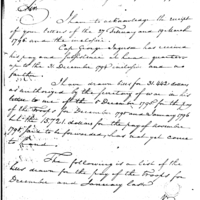 Sir
I have to acknowledge the receipt
of your letters of the 27th February and 19th March
1796 and the
Cap. George Ingersoll has received
his pay and subsistence in head quarters
up to the 31 December 1795
further
I have drawn bills for 31.442 dollars
as authorised by the Secretary of war in his
letter to me of the 5 December 1795 for the pay
of the troops for December 1795 and January 1796
but the 15.721 dollars for the pay of november
1795 said to be forwarded, has not yet come
to hand.
The following is a list of the
bills drawn for the pay of the troops for
December and January last